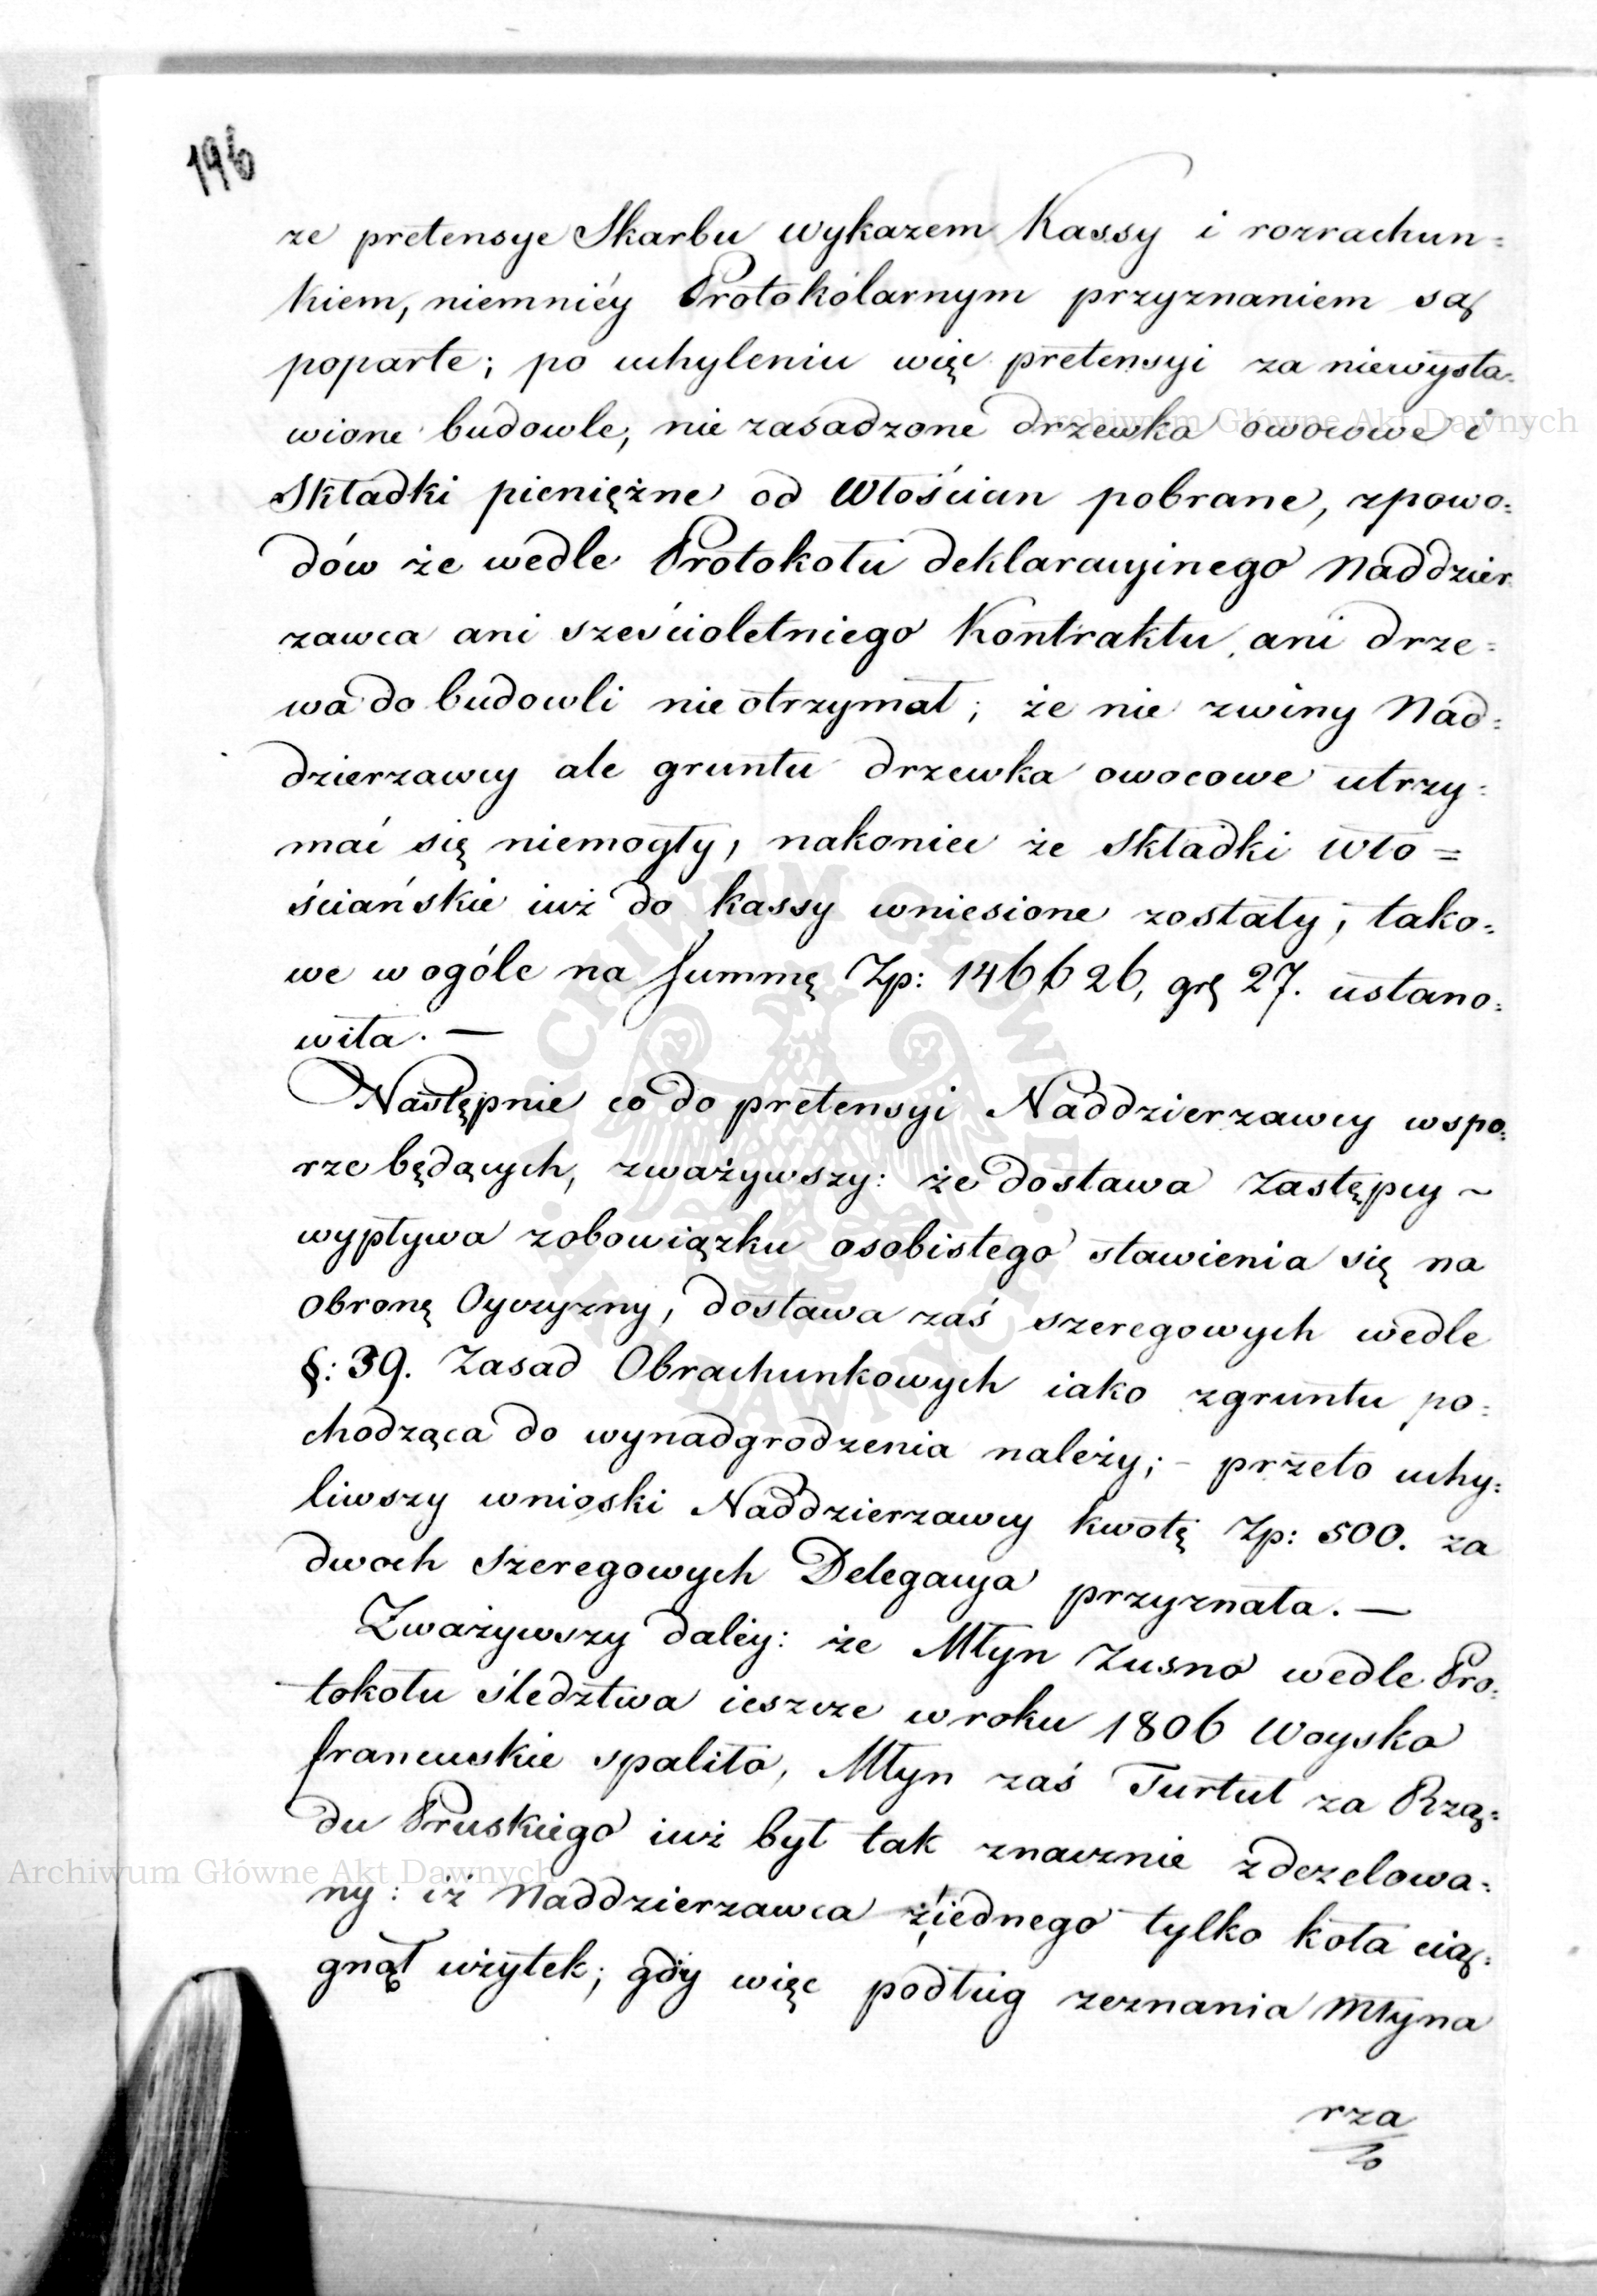 196
ze pretensye Skarbu wykazem Kassy i rozrachun=
kiem, niemniéy Protokólarnym przyznaniem są
poparte; po uchyleniu więc pretensyi za niewysta=
wione budowle, nie zasadzone drzewka owocowe i
Składki pieniężne od Włościan pobrane, zpowo=
dów że wedle Protokołu deklaracyinego Naddzier
zawca ani sześcioletniego Kontraktu, ani drze=
wa do budowli nie otrzymał; że nie zwiny Nad=
dzierzawcy ale gruntu drzewka owocowe utrzy=
mać się niemogły, nakoniec że Składki Wło=
ściańskie iuż do kassy wniesione zostały, tako=
we w ogóle na Summę Zp: 146626, grę 27. ustano=
wiła. —
Następnie co do pretensyi Naddzierzawcy wspo=
rze będących, zważywszy: że dostawa Zastępcy ~
wypływa zobowiązku osobistego stawienia się na
Obronę Oyczyzny, dostawa zaś szeregowych wedle
§: 39. Zasad Obrachunkowych iako zgruntu po=
chodząca do wynadgrodzenia należy; – przeto uchy=
liwszy wnioski Naddzierzawcy kwotę Zp: 500. za
dwoch Szeregowych Delegacya przyznała. —
Zważywszy daléy: że Młyn Zusno wedle Pro=
tokołu śledztwa ieszcze w roku 1806 Woysko
francuskie spaliło, Młyn zaś Turtul za Rzą=
du Pruskiego iuż był tak znacznie zdezelowa=
ny: iż Naddzierzawca ziednego tylko koła cią=
gnął użytek; gdy więc podług zeznania Młyna
rza
Archiwum Główne Akt Dawnych
Archiwum Główne Akt Dawnych
ARCHIWUM GŁÓWNE AKT DAWNYCH